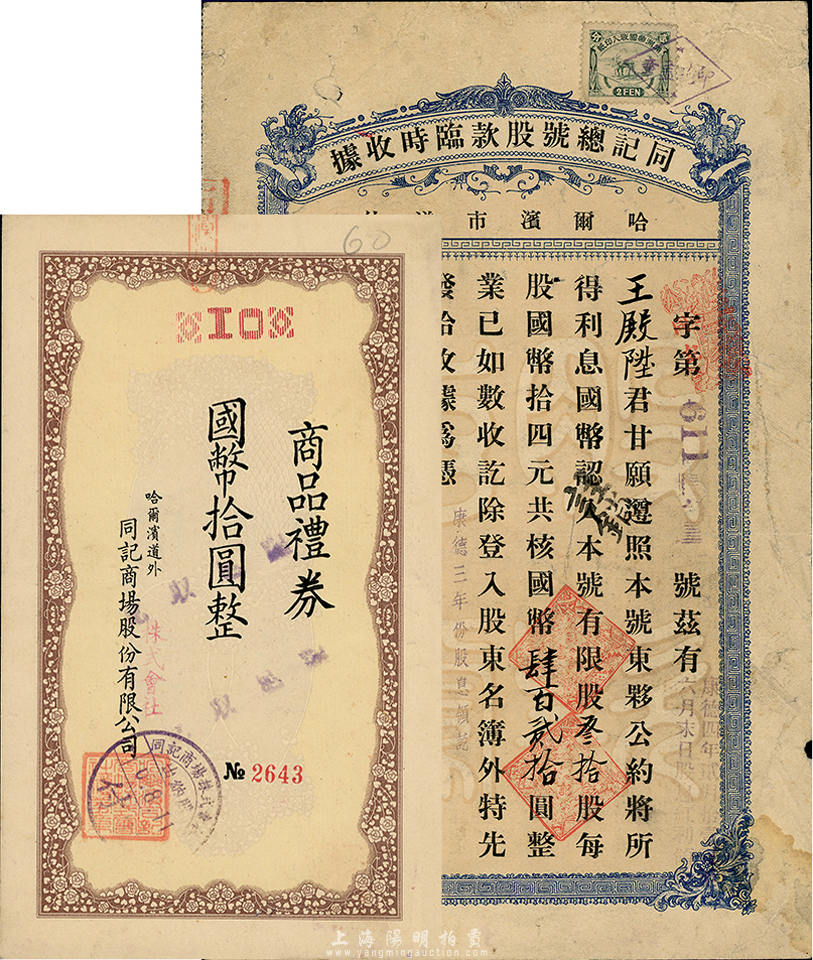 滿洲帝國收入印紙
2FEN
同記總號股款臨時收據
哈爾濱市道外
字第 611 號茲有
王殿陞君甘願遵照本號東夥公約將所
得利息國幣認入本號有限股叁拾股每
股國幣拾四元共核國幣肆百貳拾圓整
業已如數收訖除登入股東名簿外特先
發給收據為憑
康德三年份股息領訖
康德四年
六月末日股
60
10
商品禮券
國幣拾圓整
哈爾濱道外
同記商場股份有限公司
株式會社
№ 2643
同記商場株式會社
上海陽明拍賣
www.yangmingauction.com